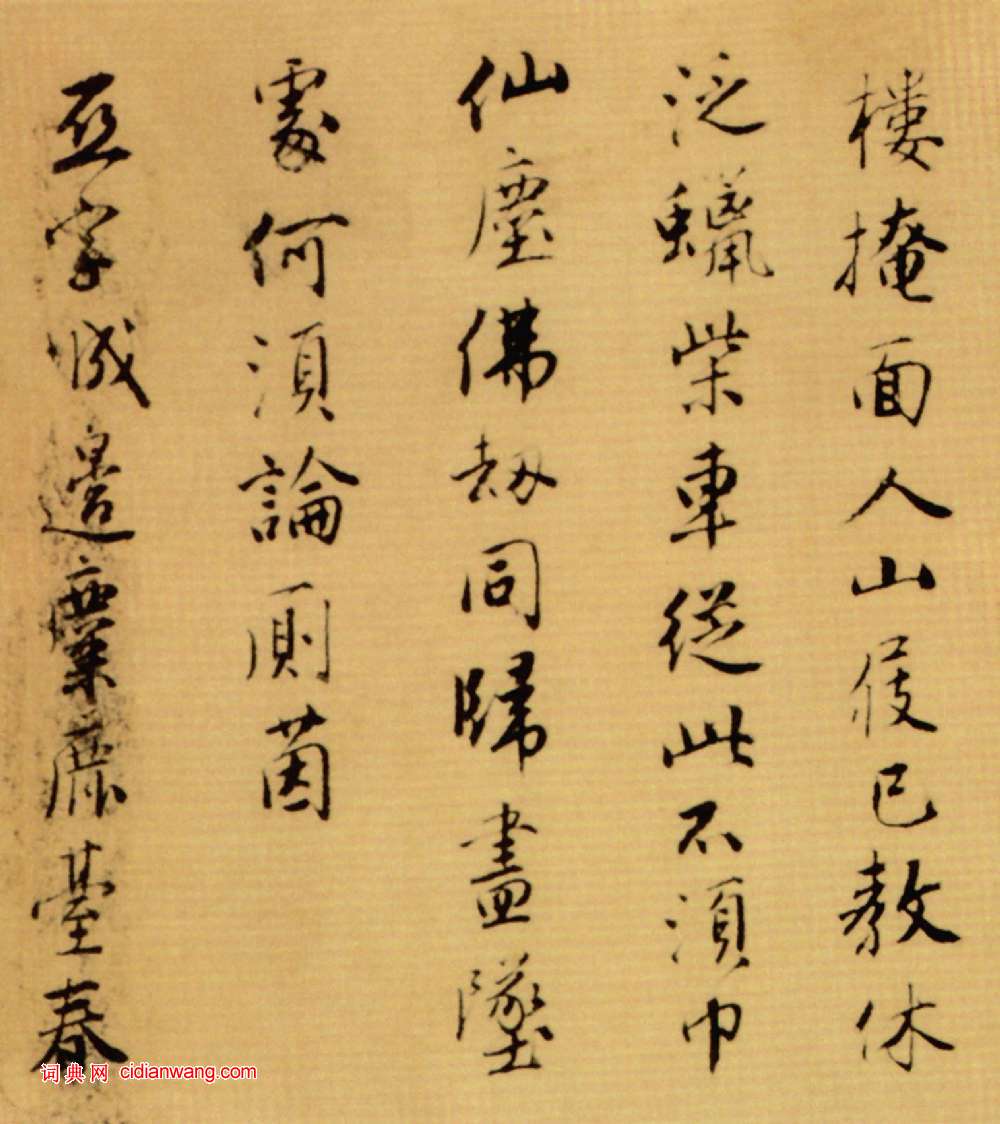 樓掩面人山屐已教休
泛蠟柴車從此不須巾
仙塵佛劫同歸盡墜
處何須論厠茵
亞字城邊麋鹿臺春
词典网 cidianwang.com